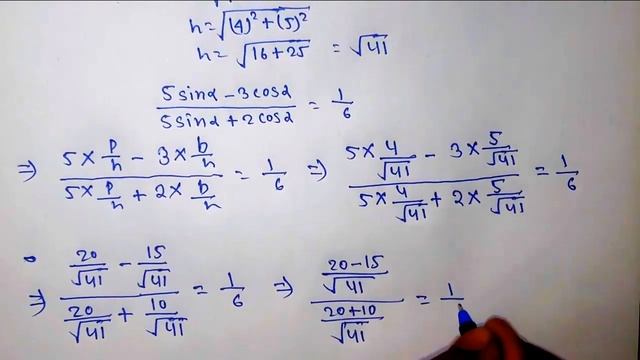 h = √(4)² + (5)²
h = √16 + 25 = √41
5 sinα - 3 cosα / 5 sinα + 2 cosα = 1/6
⇒ 5 × p/h - 3 × b/h / 5 × p/h + 2 × b/h = 1/6 ⇒ 5 × 4/√41 - 3 × 5/√41 / 5 × 4/√41 + 2 × 5/√41 = 1/6
⇒ 20/√41 - 15/√41 / 20/√41 + 10/√41 = 1/6 ⇒ 20-15/√41 / 20+10/√41 = 1/